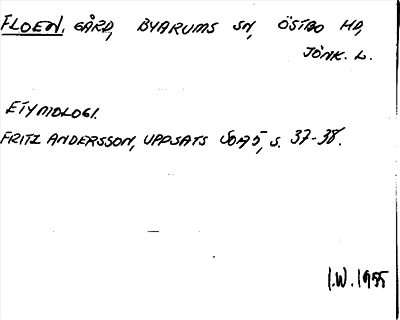 FLOEN, GÅRD, BYARUMS SN, ÖSTBO HD,
JÖNK. L.
ETYMOLOGI.
FRITZ ANDERSSON, UPPSATS s. 37-38.
I.W. 1955